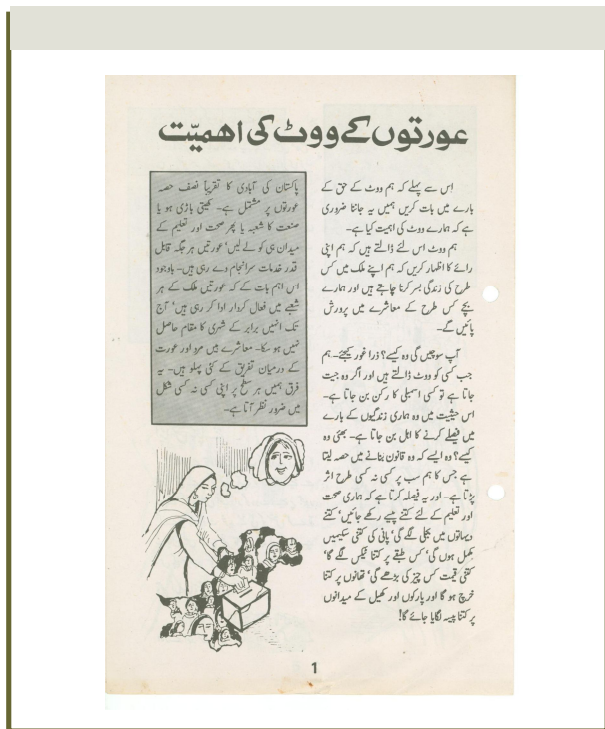 عورتوں کے ووٹ کی اہمیّت
اِس سے پہلے کہ ہم ووٹ کے حق کے
بارے میں بات کریں ہمیں یہ جاننا ضروری
ہے کہ ہمارے ووٹ کی اہمیت کیا ہے۔
ہم ووٹ اس لئے ڈالتے ہیں کہ ہم اپنی
رائے کا اظہار کریں کہ ہم اپنے ملک میں کس
طرح کی زندگی بسر کرنا چاہتے ہیں اور ہمارے
بچے کس طرح کے معاشرے میں پرورش
پائیں گے۔
آپ سوچیں گی وہ کیسے؟ ذرا غور کیجئے۔ ہم
جب کسی کو ووٹ ڈالتے ہیں اور اگر وہ جیت
جاتا ہے تو کسی اسمبلی کا رکن بن جاتا ہے۔
اس حیثیت میں وہ ہماری زندگیوں کے بارے
میں فیصلے کرنے کا اہل بن جاتا ہے۔ بھئی وہ
کیسے؟ وہ ایسے کہ وہ قانون بنانے میں حصہ لیتا
ہے جس کا ہم سب پر کسی نہ کسی طرح اثر
پڑتا ہے۔ اور یہ فیصلہ کرتا ہے کہ ہماری صحت
اور تعلیم کے لئے کتنے پیسے رکھے جائیں' کتنے
دیہاتوں میں بجلی لگے گی' پانی کی کتنی سکیمیں
مکمل ہوں گی' کس طبقے پر کتنا ٹیکس لگے گا'
کتنی قیمت کس چیز کی بڑھے گی' تھانوں پر کتنا
خرچ ہو گا اور پارکوں اور کھیل کے میدانوں
پر کتنا پیسہ لگایا جائے گا!
پاکستان کی آبادی کا تقریباً نصف حصہ
عورتوں پر مشتمل ہے۔ کھیتی باڑی ہو یا
صنعت کا شعبہ یا پھر صحت اور تعلیم کے
میدان ہی کو لے لیں' عورتیں ہر جگہ قابل
قدر خدمات سرانجام دے رہی ہیں۔ باوجود
اس اہم بات کے کہ عورتیں ملک کے ہر
شعبے میں فعال کردار ادا کر رہی ہیں' آج
تک انہیں برابر کے شہری کا مقام حاصل
نہیں ہو سکا۔ معاشرے میں مرد اور عورت
کے درمیان تفریق کے کئی پہلو ہیں۔ یہ
فرق ہمیں ہر سطح پر اپنی کسی نہ کسی شکل
میں ضرور نظر آتا ہے۔
1